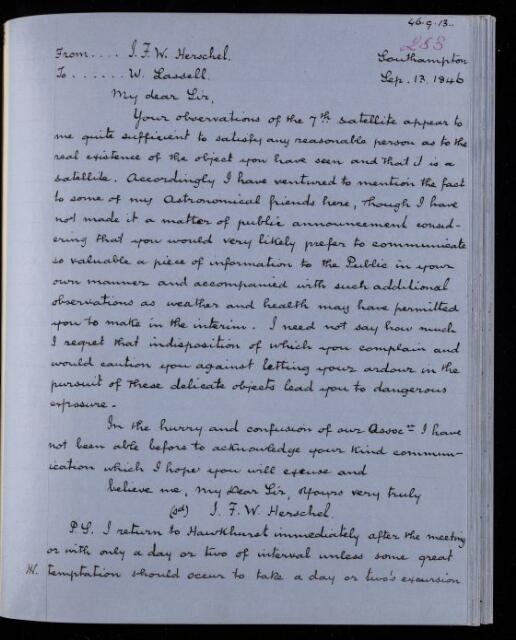 46.9.13.
253
From.... J.F.W. Herschel. Southampton
To...... W. Lassell. Sep. 13. 1846
My dear Sir,
Your observations of the 7th satellite appear to
me quite sufficient to satisfy any reasonable person as to the
real existence of the object you have seen and that it is a
satellite. Accordingly I have ventured to mention the fact
to some of my Astronomical friends here, though I have
not made it a matter of public announcement consid-
ering that you would very likely prefer to communicate
so valuable a piece of information to the Public in your
own manner and accompanied with such additional
observations as weather and health may have permitted
you to make in the interim. I need not say how much
I regret that indisposition of which you complain and
would caution you against letting your ardour in the
pursuit of these delicate objects lead you to dangerous
exposure.
In the hurry and confusion of our Assocn I have
not been able before to acknowledge your kind commun-
ication which I hope you will excuse and
believe me, My Dear Sir, Yours very truly
(sd) J.F.W. Herschel.
P.S. I return to Hawkhurst immediately after the meeting
or with only a day or two of interval unless some great
temptation should occur to take a day or two's excursion